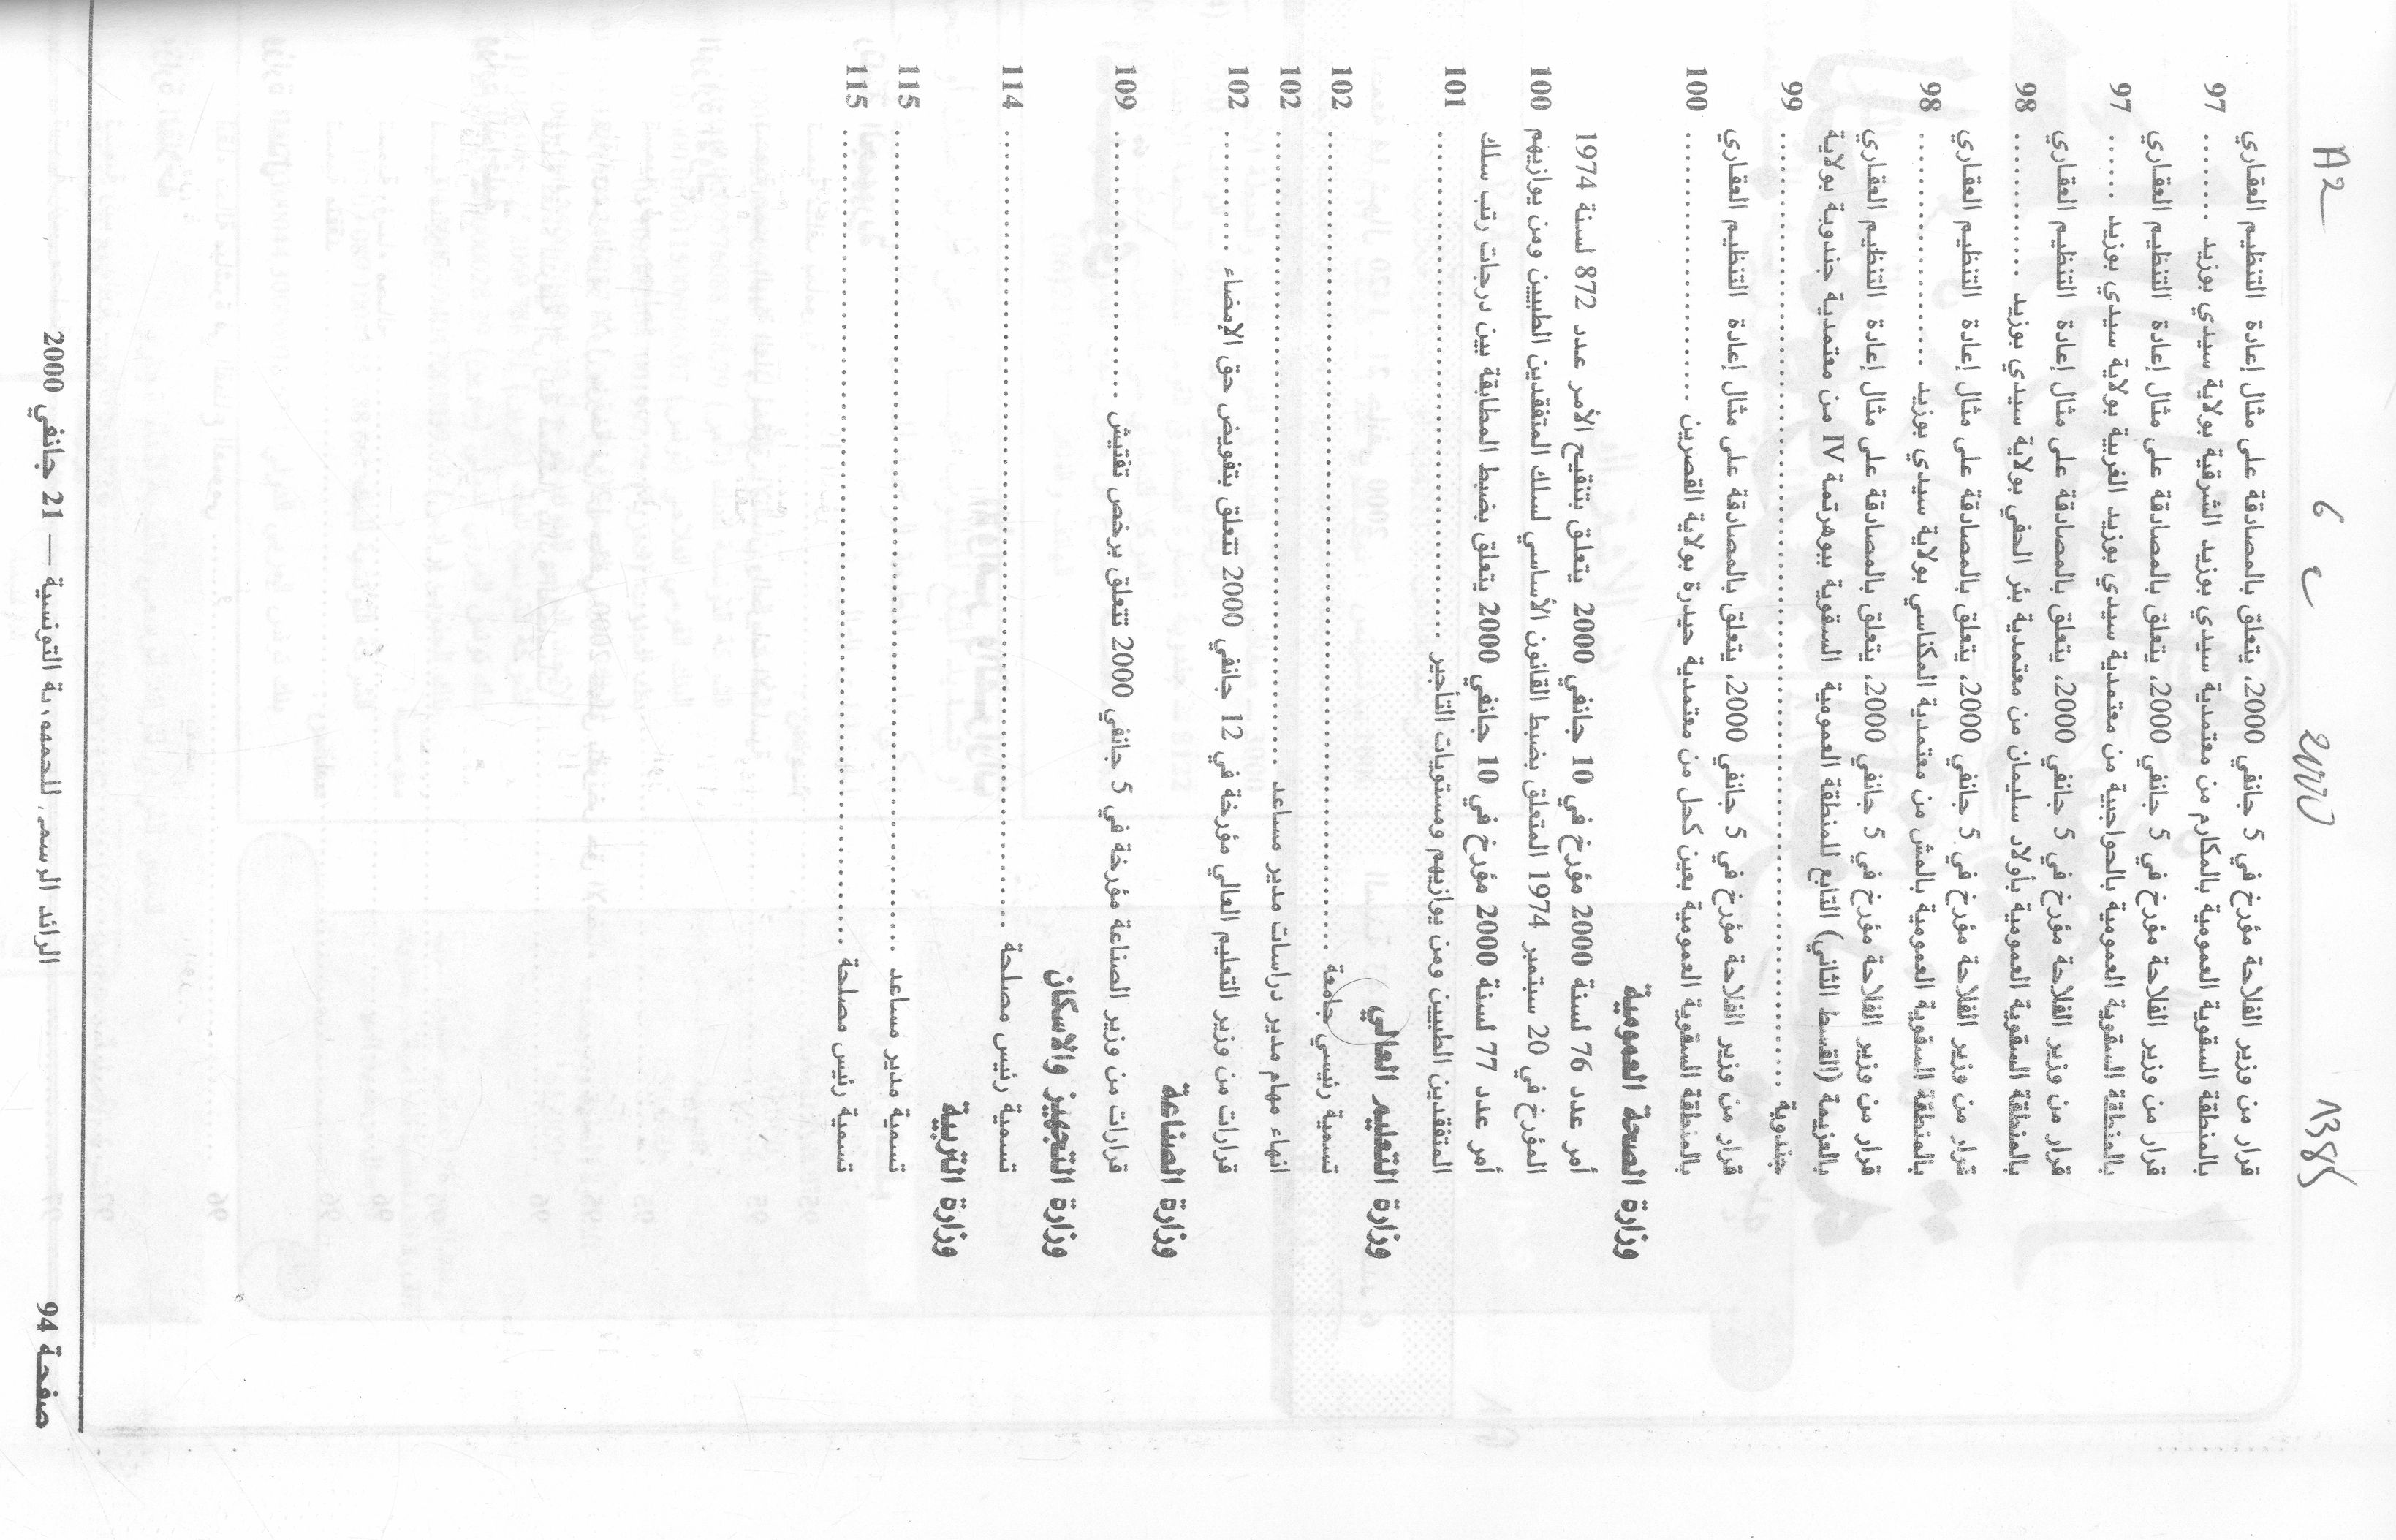 A2 6 c 2000 N385
قرار من وزير الفلاحة مؤرخ في 5 جانفي 2000، يتعلق بالمصادقة على مثال إعادة التنظيم العقاري
بالمنطقة السقوية العمومية بالمكارم من معتمدية سيدي بوزيد الشرقية بولاية سيدي بوزيد ........ 97
قرار من وزير الفلاحة مؤرخ في 5 جانفي 2000، يتعلق بالمصادقة على مثال إعادة التنظيم العقاري
بالمنطقة السقوية العمومية بالحواجبية من معتمدية سيدي بوزيد الغربية بولاية سيدي بوزيد ...... 97
قرار من وزير الفلاحة مؤرخ في 5 جانفي 2000، يتعلق بالمصادقة على مثال إعادة التنظيم العقاري
بالمنطقة السقوية العمومية بأولاد سليمان من معتمدية بئر الحفي بولاية سيدي بوزيد ............ 98
قرار من وزير الفلاحة مؤرخ في 5 جانفي 2000، يتعلق بالمصادقة على مثال إعادة التنظيم العقاري
بالمنطقة السقوية العمومية بالمش من معتمدية المكناسي بولاية سيدي بوزيد .................. 98
قرار من وزير الفلاحة مؤرخ في 5 جانفي 2000، يتعلق بالمصادقة على مثال إعادة التنظيم العقاري
بالعزيمة (القسط الثاني) التابع للمنطقة العمومية السقوية ببوهرتمة IV من معتمدية جندوبة بولاية
جندوبة .................................................. 99
قرار من وزير الفلاحة مؤرخ في 5 جانفي 2000، يتعلق بالمصادقة على مثال إعادة التنظيم العقاري
بالمنطقة السقوية العمومية بعين كحل من معتمدية حيدرة بولاية القصرين ..................... 100
وزارة الصحة العمومية
أمر عدد 76 لسنة 2000 مؤرخ في 10 جانفي 2000 يتعلق بتنقيح الأمر عدد 872 لسنة 1974
المؤرخ في 20 سبتمبر 1974 المتعلق بضبط القانون الأساسي لسلك المتفقدين الطبيين ومن يوازيهم 100
أمر عدد 77 لسنة 2000 مؤرخ في 10 جانفي 2000 يتعلق بضبط المطابقة بين درجات رتب سلك
المتفقدين الطبيين ومن يوازيهم ومستويات التأجير ........................................ 101
وزارة التعليم العالي
تسمية رئيسي جامعة .................................................. 102
انهاء مهام مدير دراسات مدير مساعد .................................................. 102
قرارات من وزير التعليم العالي مؤرخة في 12 جانفي 2000 تتعلق بتفويض حق الإمضاء .......... 102
وزارة الصناعة
قرارات من وزير الصناعة مؤرخة في 5 جانفي 2000 تتعلق برخص تفتيش ...................... 109
وزارة التجهيز والاسكان
تسمية رئيس مصلحة .................................................. 114
وزارة التربية
تسمية مدير مساعد .................................................. 115
تسمية رئيس مصلحة .................................................. 115
صفحة 94 الرائد الرسمي للجمهورية التونسية — 21 جانفي 2000